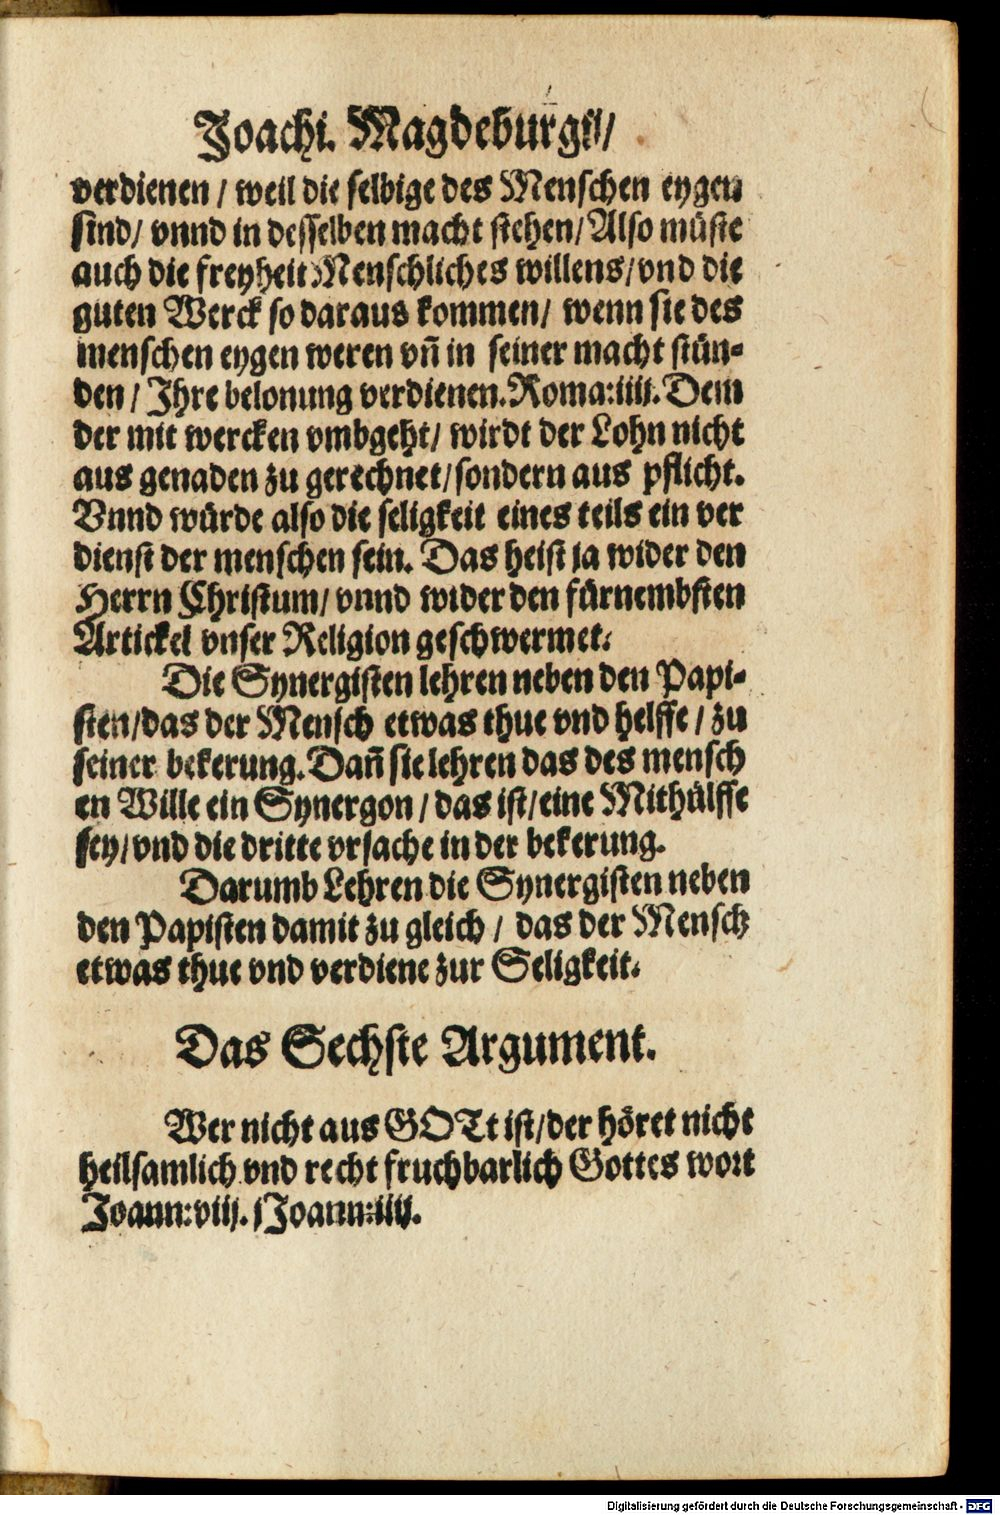 Joachi. Magdeburgs/
verdienen / weil die selbige des Menschen eygen
sind/ vnnd in desselben macht stehen/ Also müste
auch die freyheit Menschliches willens/ vnd die
guten Werck so daraus kommen/ wenn sie des
menschen eygen weren vñ in seiner macht stün-
den / Ihre belonung verdienen. Roma: iiij. Dem
der mit wercken vmbgeht/ wirdt der Lohn nicht
aus genaden zu gerechnet/ sondern aus pflicht.
Vnnd würde also die seligkeit eines teils ein ver
dienst der menschen sein. Das heist ja wider den
Herrn Christum/ vnnd wider den fürnembsten
Artickel vnser Religion geschwermet.
Die Synergisten lehren neben den Papi-
sten/ das der Mensch etwas thue vnd helffe / zu
seiner bekerung. Dañ sie lehren das des mensch
en Wille ein Synergon / das ist/ eine Mithülffe
sey/ vnd die dritte vrsache in der bekerung.
Darumb Lehren die Synergisten neben
den Papisten damit zu gleich / das der Mensch
etwas thue vnd verdiene zur Seligkeit.
Das Sechste Argument.
Wer nicht aus GOTt ist/ der höret nicht
heilsamlich vnd recht fruchbarlich Gottes wort
Joann: viij. 1 Joann: iiij.
Digitalisierung gefördert durch die Deutsche Forschungsgemeinschaft - DFG